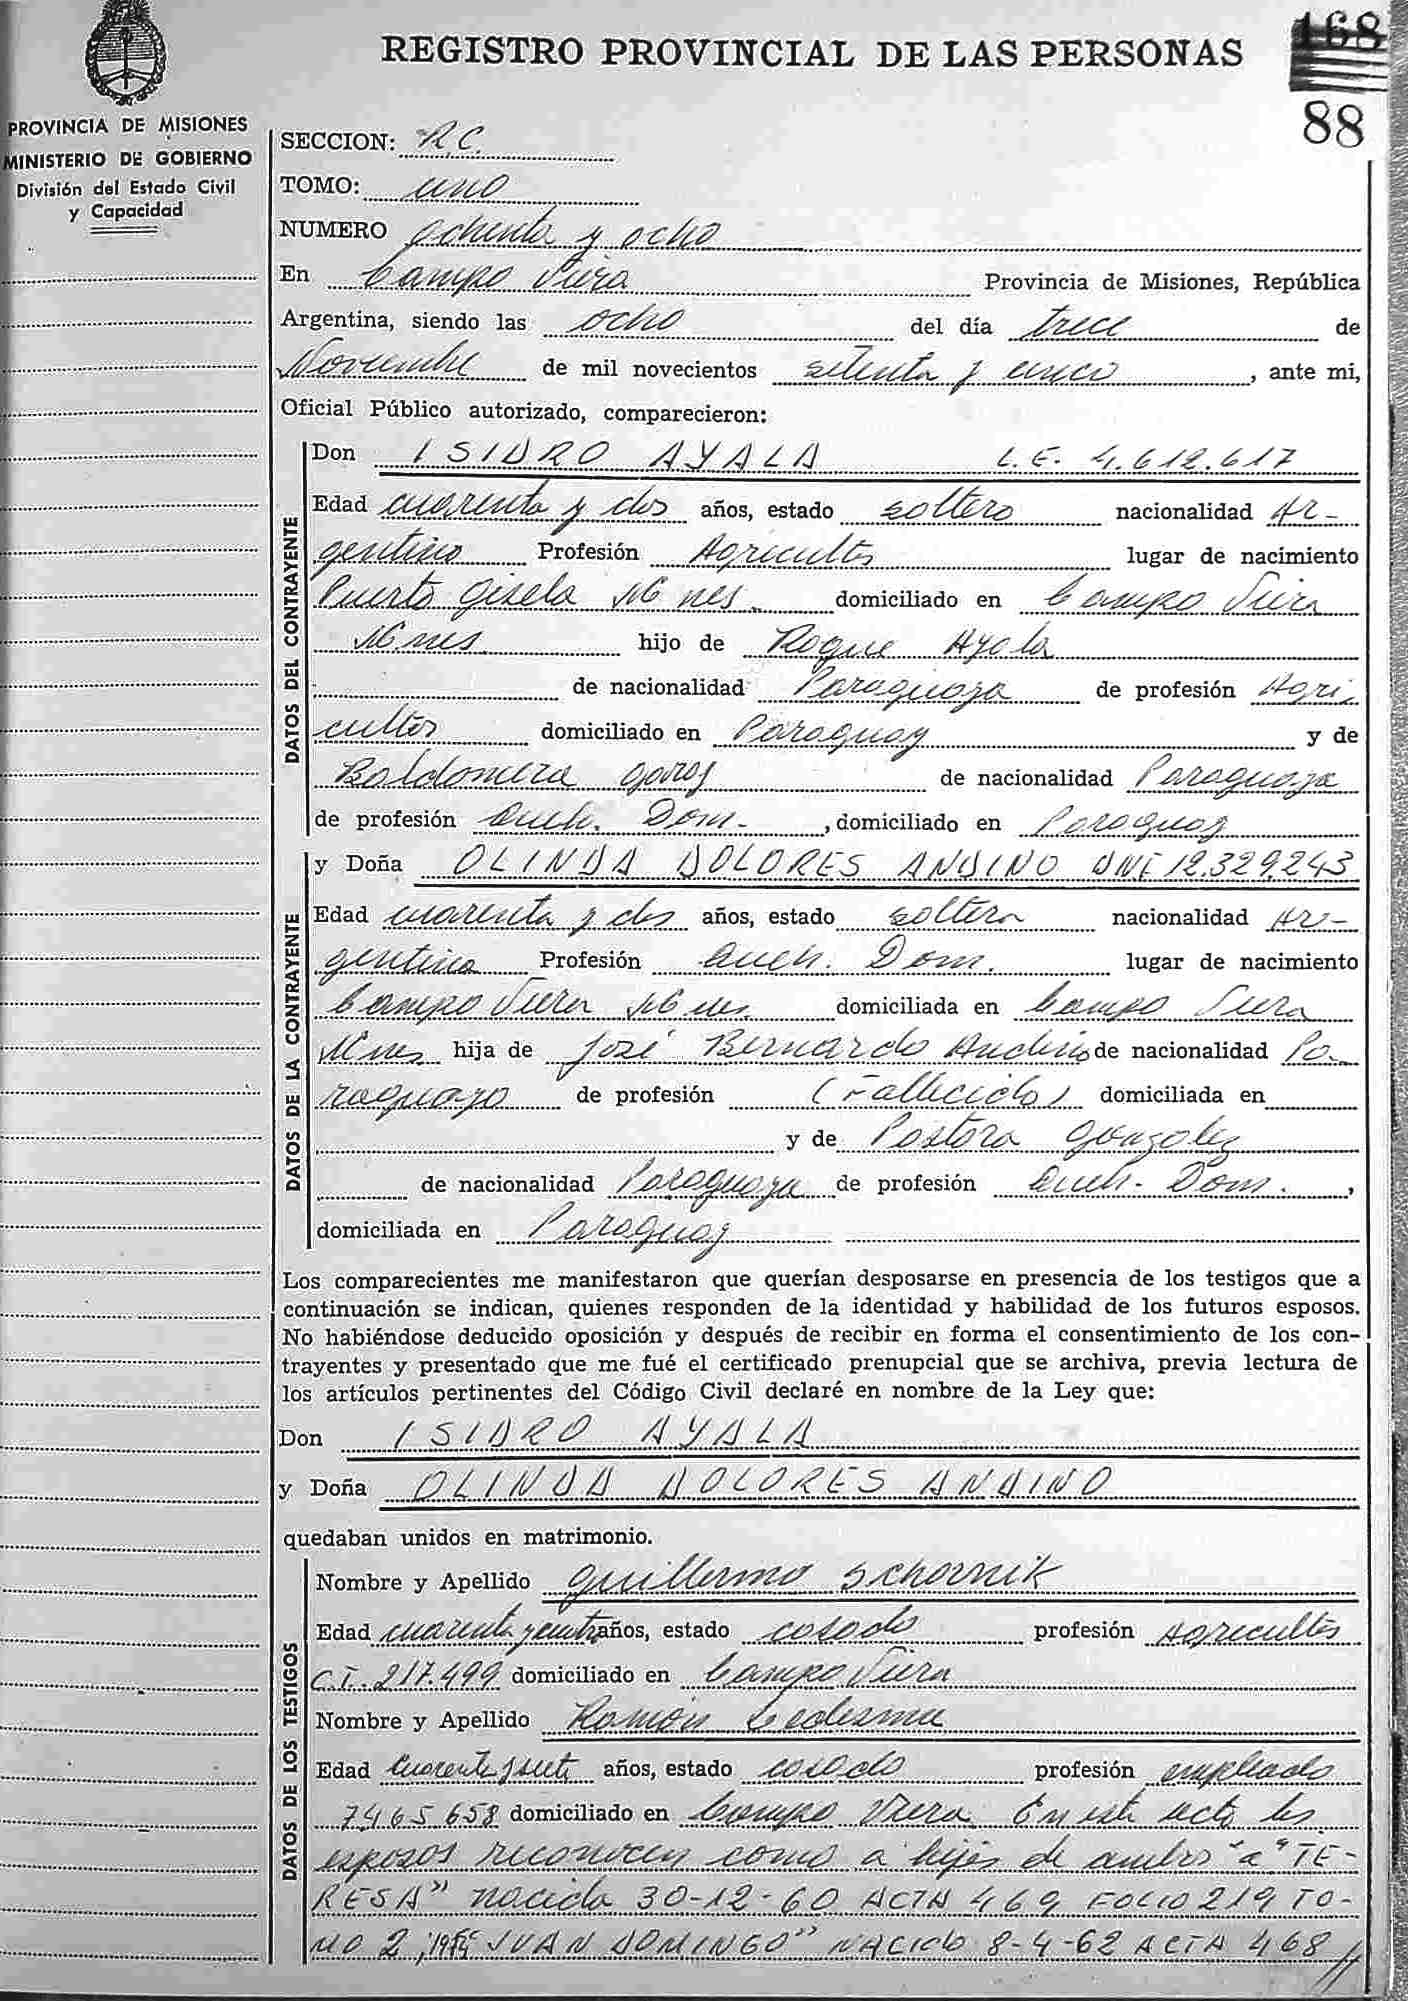 REGISTRO PROVINCIAL DE LAS PERSONAS
168
88
PROVINCIA DE MISIONES
MINISTERIO DE GOBIERNO
División del Estado Civil
y Capacidad
SECCION: R.C.
TOMO: uno
NUMERO ochenta y ocho
En Campo Viera Provincia de Misiones, República
Argentina, siendo las ocho del día trece de
Noviembre de mil novecientos setenta y cinco, ante mi,
Oficial Público autorizado, comparecieron:
DATOS DEL CONTRAYENTE
Don ISIDRO AYALA L.E. 4.612.617
Edad cuarenta y dos años, estado soltero nacionalidad Ar-
gentino Profesión Agricultor lugar de nacimiento
Puerto Gisela Mnes. domiciliado en Campo Viera
Mnes. hijo de Roque Ayala
de nacionalidad Paraguaya de profesión Agri-
cultor domiciliado en Paraguay y de
Baldomera Garay de nacionalidad Paraguaya
de profesión Queh. Dom. , domiciliado en Paraguay
DATOS DE LA CONTRAYENTE
y Doña OLINDA DOLORES ANDINO DNI 12.329.243
Edad cuarenta y dos años, estado soltera nacionalidad Ar-
gentina Profesión Queh. Dom. lugar de nacimiento
Campo Viera Mnes. domiciliada en Campo Viera
Mnes hija de José Bernardo Andino de nacionalidad Pa-
raguayo de profesión (Fallecido) domiciliada en
y de Pastora Gonzalez
de nacionalidad Paraguaya de profesión Queh. Dom. ,
domiciliada en Paraguay
Los comparecientes me manifestaron que querían desposarse en presencia de los testigos que a
continuación se indican, quienes responden de la identidad y habilidad de los futuros esposos.
No habiéndose deducido oposición y después de recibir en forma el consentimiento de los con-
trayentes y presentado que me fué el certificado prenupcial que se archiva, previa lectura de
los artículos pertinentes del Código Civil declaré en nombre de la Ley que:
Don ISIDRO AYALA
y Doña OLINDA DOLORES ANDINO
quedaban unidos en matrimonio.
DATOS DE LOS TESTIGOS
Nombre y Apellido Guillermo Schornik
Edad cuarenta y años, estado casado profesión Agricultor
C.I. 217.499 domiciliado en Campo Viera
Nombre y Apellido Ramón Ledesma
Edad Cuarenta y siete años, estado casado profesión empleado
7465658 domiciliado en Campo Viera En este acto los
esposos reconocen como a hijos de ambos "a" TE-
RESA" nacida 30-12-60 ACTA 469 FOLIO 219 TO-
MO 2, JUAN DOMINGO" NACIdo 8-4-62 ACTA 468 //